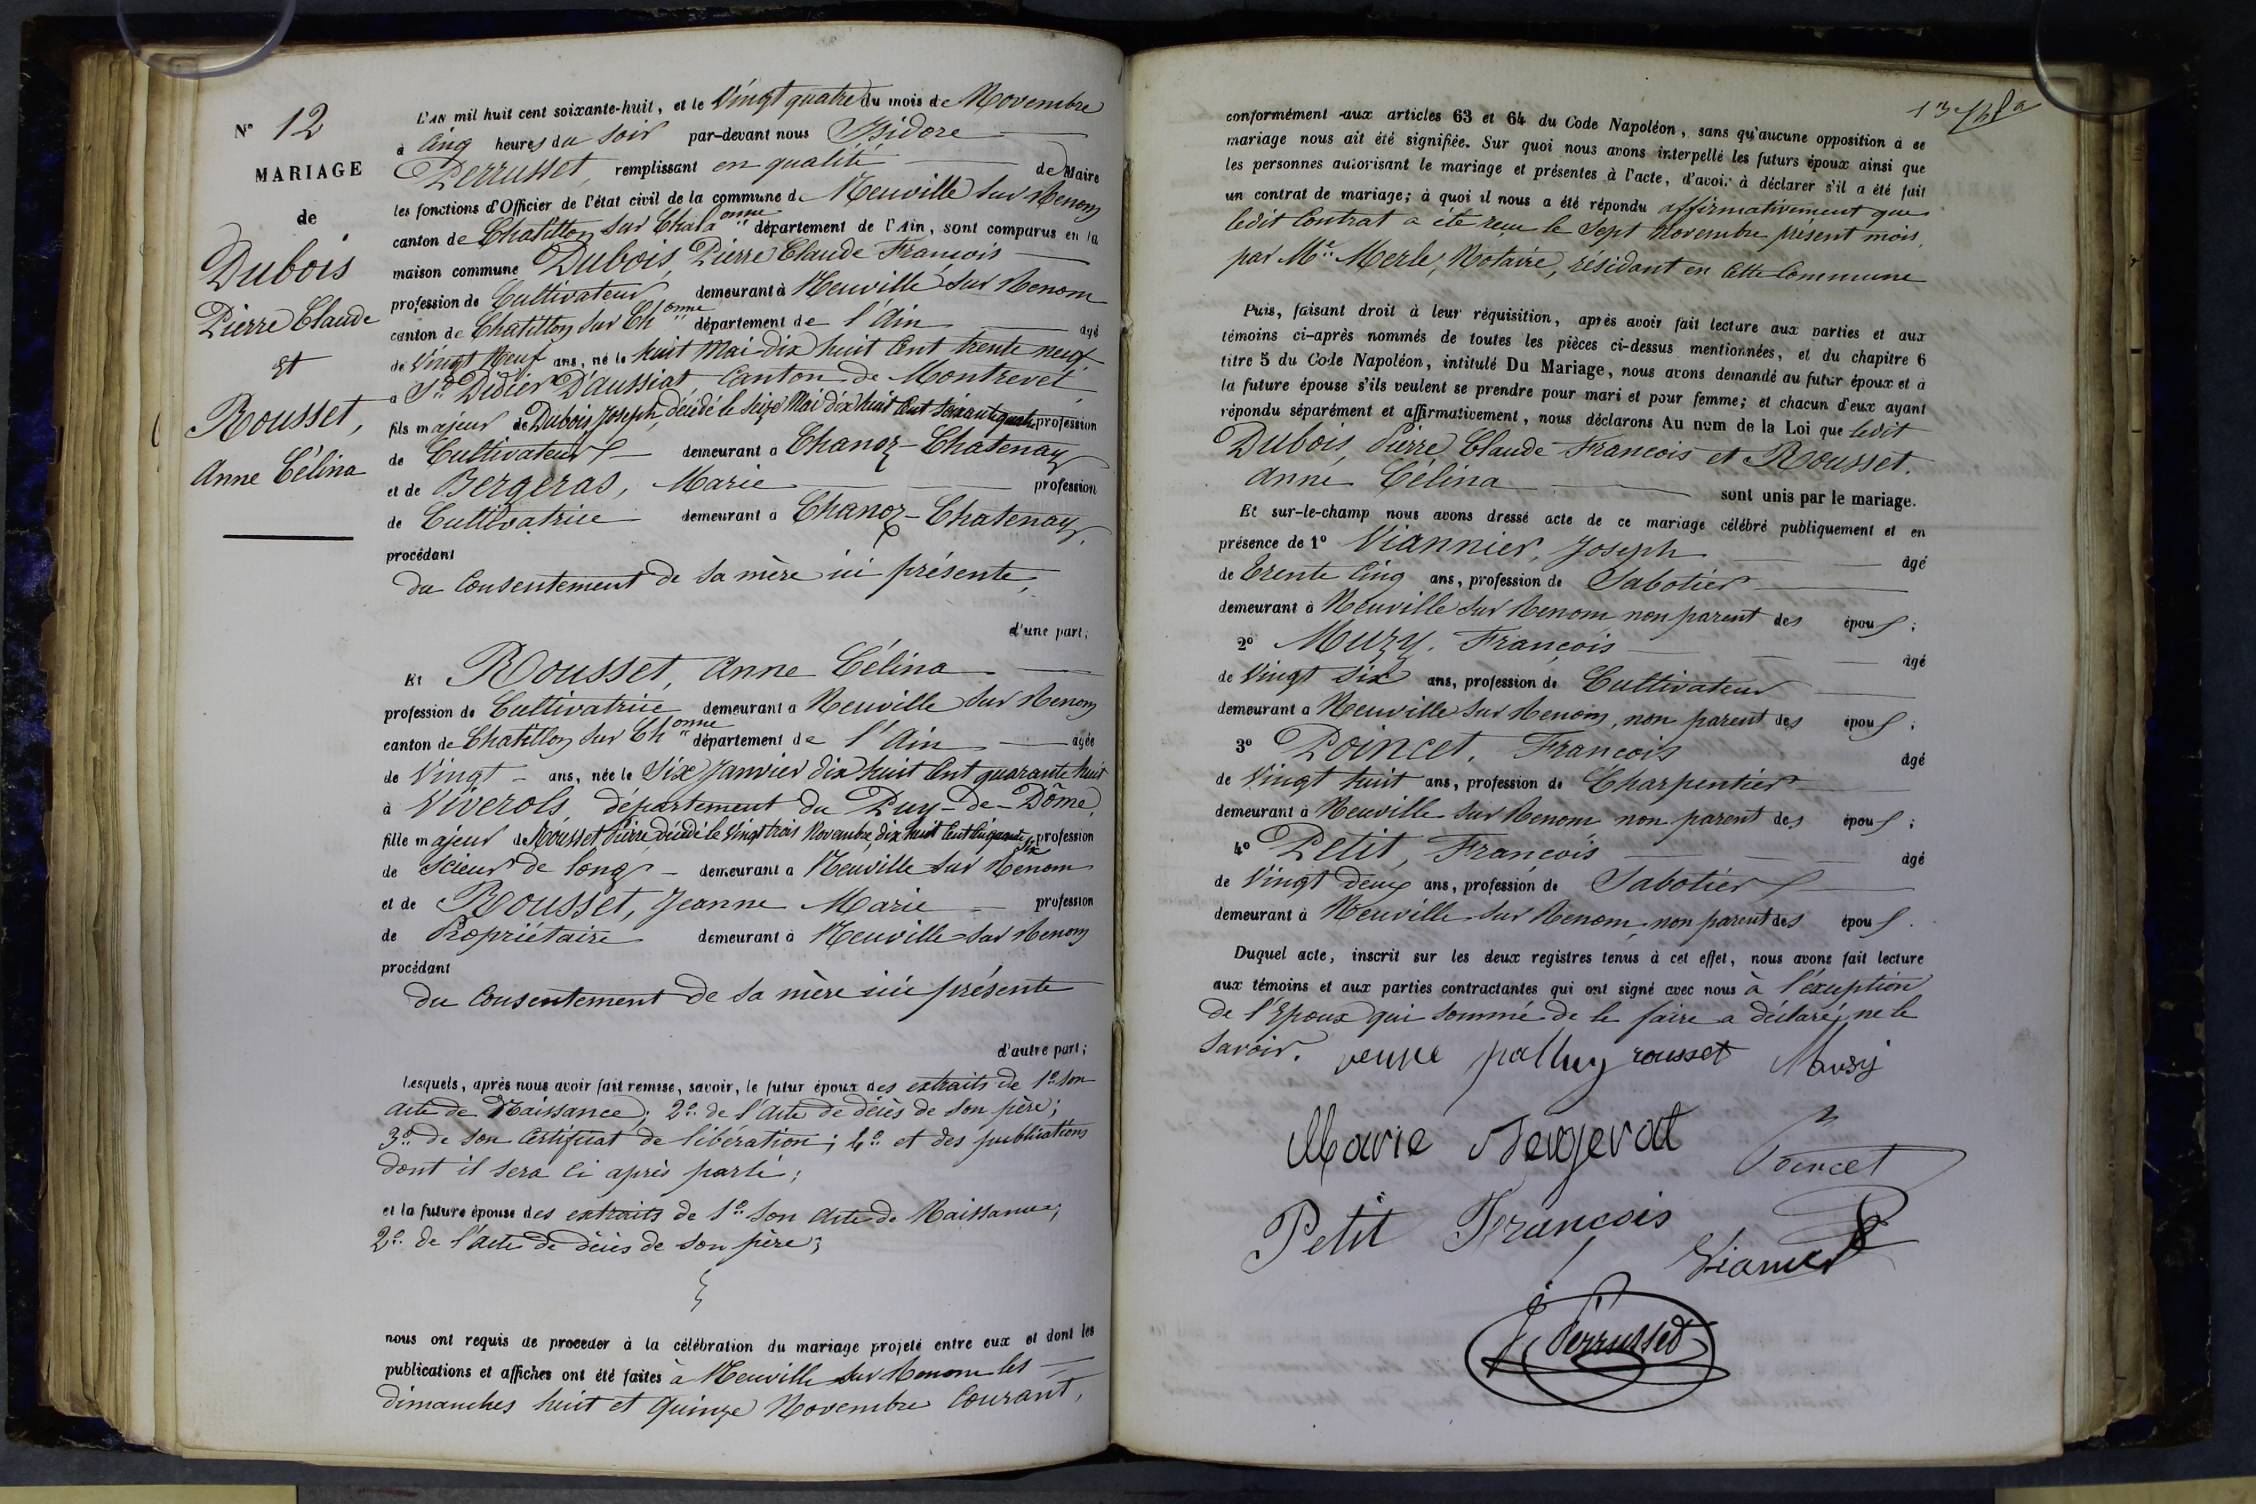 N° 12
MARIAGE
de
Dubois
Pierre Claude
et
Rousset,
Anne Célina
L'AN mil huit cent soixante-huit, et le Vingt quatre du mois de Novembre
à Cinq heures du soir par-devant nous Isidore
Perrusset, remplissant en qualité de Maire
les fonctions d'Officier de l'état civil de la commune de Neuville sur Renom
canton de Chatillon sur Chalaonne département de l'Ain, sont comparus en la
maison commune Dubois, Pierre Claude François
profession de Cultivateur demeurant à Neuville sur Renom
canton de Chatillon sur Chonne département de l'Ain âgé
de Vingt Neuf ans, né le huit Mai dix huit Cent trente neuf
à St Didier D'aussiat, Canton de Montrevel
fils majeur de Dubois Joseph, décédé le seize Mai dix huit Cent soixante quatre profession
de Cultivateur demeurant à Chanoz-Chatenay
et de Bergeras, Marie profession
de Cultivatrice demeurant à Chanoz-Chatenay,
procédant
du Consentement de sa mère ici présente,
d'une part;
Et Rousset, Anne Célina
profession de Cultivatrice demeurant à Neuville sur Renom
canton de Chatillon sur Chonne département de l'Ain âgée
de Vingt ans, née le Six Janvier dix huit Cent quarante huit
à Viverols département du Puy-de-Dôme,
fille majeur de Rousset Pierre décédé le Vingt trois Novembre, dix huit Cent Cinquante six profession
de Scieur de long demeurant à Neuville sur Renom
et de Rousset, Jeanne Marie profession
de Propriétaire demeurant à Neuville sur Renom
procédant
du Consentement de sa mère ici présente
d'autre part;
Lesquels, après nous avoir fait remise, savoir, le futur époux des extraits de 1° son
acte de Naissance; 2° de l'acte de décès de son père;
3° de son Certificat de libération; 4° et des publications
dont il sera Ci après parlé;
et la future épouse des extraits de 1° son Acte de Naissance;
2° de l'Acte de décès de son père;
nous ont requis de procéder à la célébration du mariage projeté entre eux et dont les
publications et affiches ont été faites à Neuville sur Renom les
dimanches huit et Quinze Novembre Courant,
conformément aux articles 63 et 64 du Code Napoléon, sans qu'aucune opposition à ce
mariage nous ait été signifiée. Sur quoi nous avons interpellé les futurs époux ainsi que
les personnes autorisant le mariage et présentes à l'acte, d'avoir à déclarer s'il a été fait
un contrat de mariage; à quoi il nous a été répondu affirmativement que
ledit Contrat a été reçu le Sept Novembre présent mois,
par Me Merle, Notaire, résidant en Cette Commune
Puis, faisant droit à leur réquisition, après avoir fait lecture aux parties et aux
témoins ci-après nommés de toutes les pièces ci-dessus mentionnées, et du chapitre 6
titre 5 du Code Napoléon, intitulé Du Mariage, nous avons demandé au futur époux et à
la future épouse s'ils veulent se prendre pour mari et pour femme; et chacun d'eux ayant
répondu séparément et affirmativement, nous déclarons Au nom de la Loi que ledit
Dubois, Pierre Claude François et Rousset,
Anne Célina sont unis par le mariage.
Et sur-le-champ nous avons dressé acte de ce mariage célébré publiquement et en
présence de 1° Viannier, Joseph âgé
de Trente Cinq ans, profession de Sabotier
demeurant à Neuville sur Renom non parent des épous;
2° Muzy, François âgé
de Vingt Six ans, profession de Cultivateur
demeurant à Neuville sur Renom, non parent des épous;
3° Poincet, François âgé
de Vingt huit ans, profession de Charpentier
demeurant à Neuville sur Renom non parent des épous;
4° Petit, François âgé
de Vingt deux ans, profession de Sabotier
demeurant à Neuville sur Renom, non parent des épous.
Duquel acte, inscrit sur les deux registres tenus à cet effet, nous avons fait lecture
aux témoins et aux parties contractantes qui ont signé avec nous à l'exception
de l'Epoux qui sommé de le faire a déclaré ne le
savoir.
rousset Muzy
Marie Bergerat Poincet
Petit François
Vianier
J Perrusset